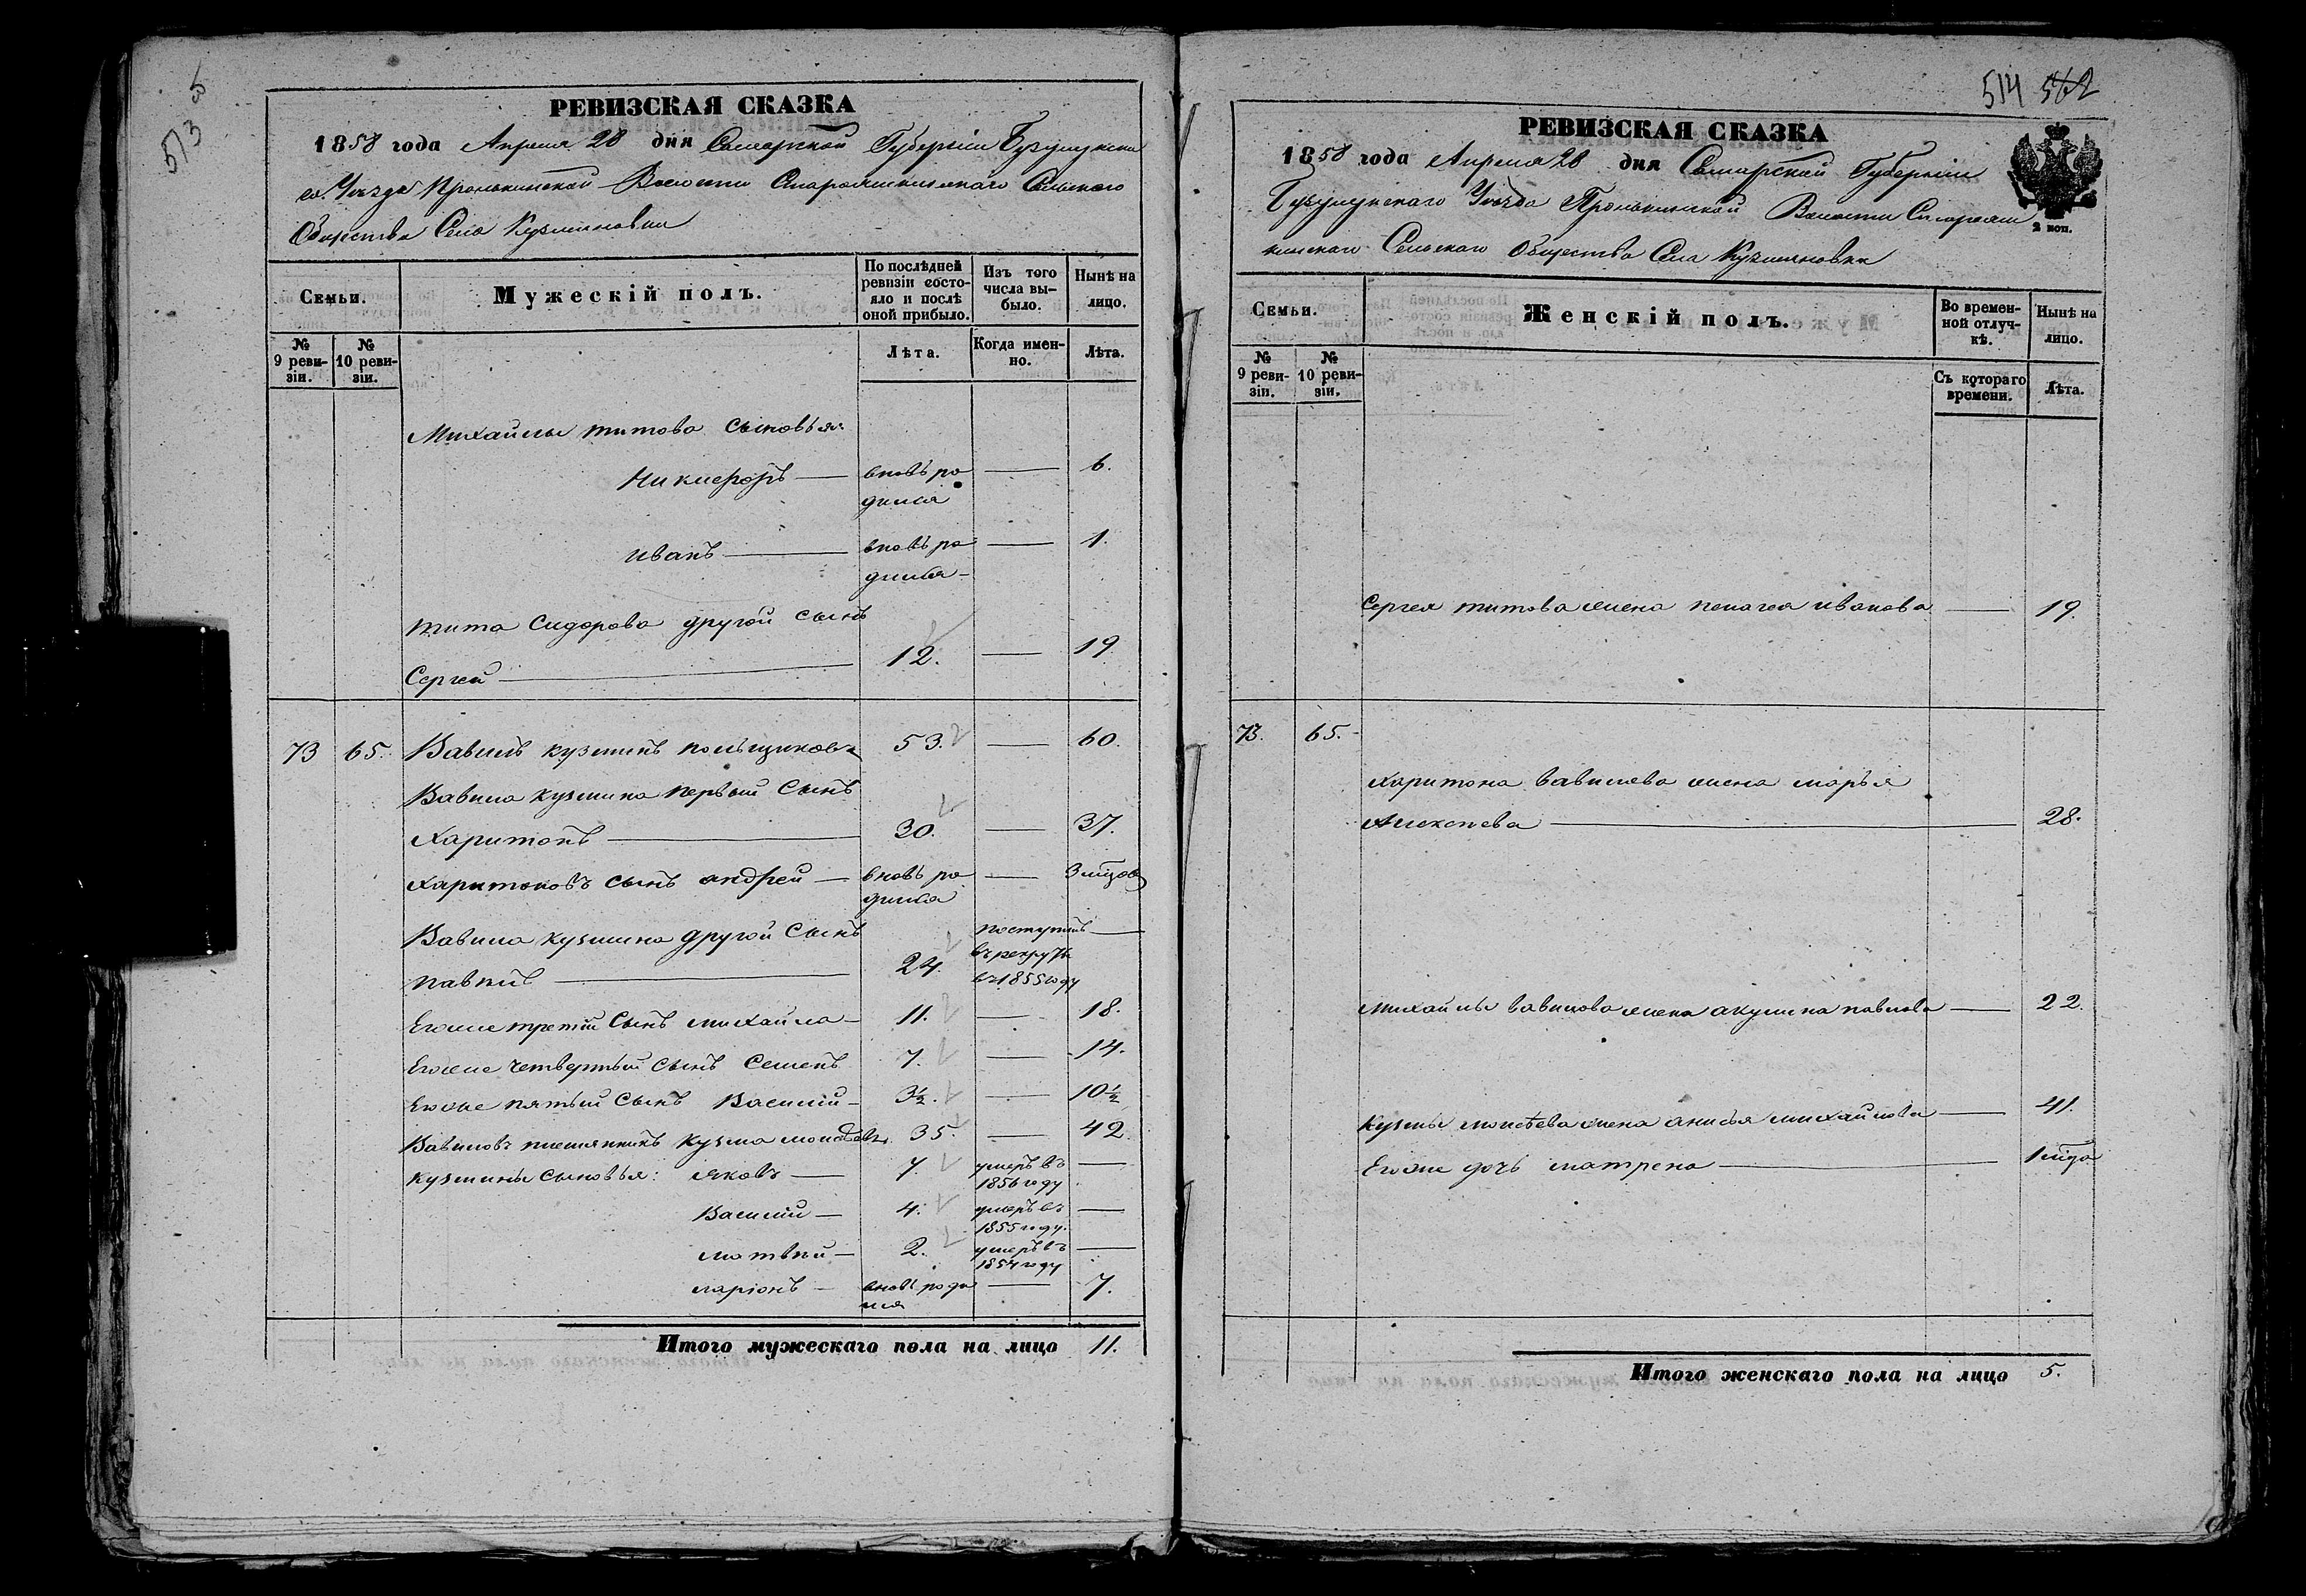 513
РЕВИЗСКАЯ СКАЗКА
1858 года Апреля 28 дня Самарской Губерніи Бузулукска
го Уѣзда Пронькинской Волости Сельскаго
Общества Села Кузминовки
Семьи.
Мужескій полъ.
По послѣдней ревизіи состо-
яло и послѣ
оной прибыло.
Изъ того
числа вы-
было.
Нынѣ на
лицо.
№
9 реви-
зіи.
№
10 реви-
зіи.
Лѣта.
Когда имен-
но.
Лѣта.
Михайлы титова сыновья:
Никифоръ — вновь ро — 6.
дился
иванъ — вновь ро — 1.
дился
тита Сидорова другой сынъ
Сергей — 12. — 19
73 65. Вавилъ кузминъ 53. — 60.
Вавила кузмина первый сынъ
Харитонъ — 30. — 37.
Харитоновъ сынъ андрей — вновь ро — 3
дился
Вавила кузмина другой сынъ поступилъ —
24. въ рекруты
въ 1855 году
Егоже третій сынъ михайла — 11. — 18.
Егоже четвертый сынъ Семенъ 7. — 14.
Егоже пятый сынъ Василій — 3½. — 10½
Вавиловъ племянникъ кузма моисѣевъ 35. — 42.
кузмины сыновья: яковъ — 7. умеръ въ —
1856 году
Василій — 4. умеръ въ —
1855 году.
матвей — 2. умеръ въ —
1854 году
ларіонъ — вновь роди — 7.
лся
Итого мужескаго пола на лицо 11.
514 562
РЕВИЗСКАЯ СКАЗКА
1858 года Апреля 28 дня Самарской Губерніи
Бузулукскаго Уѣзда Пронькинской Волости
Сельскаго Общества Села Кузминовки
2 коп.
Семьи.
Женскій полъ.
Во времен-
ной отлуч-
кѣ.
Нынѣ на
лицо.
№
9 реви-
зіи.
№
10 реви-
зіи.
Съ котораго
времени.
Лѣта.
Сергея титова жена пелагея иванова — 19.
73. 65.
Харитона вавилова жена марья
Алексеева — 28.
Михайлы вавилова жена акулина павлова — 22.
Кузмы моисѣева жена анисья михайлова — 41.
Егоже дочь матрена — 1
Итого женскаго пола на лицо 5.